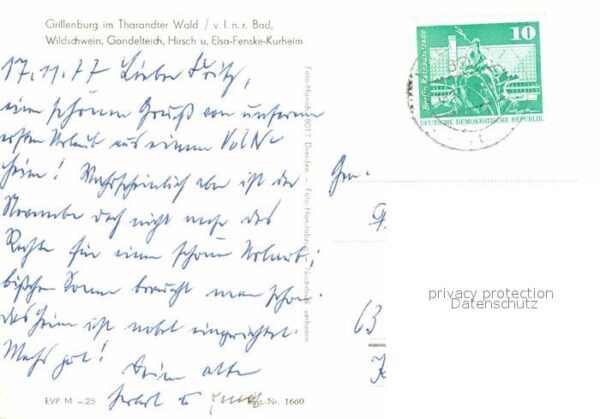 Grillenburg im Tharandter Wald / v. l. n. r. Bad,
Wildschwein, Gondelteich, Hirsch u. Elsa-Fenske-Kurheim
17.11.77 Lieber Fritz,
ein schönen Gruß von unserem
ersten Urlaub aus einem
heim! Wahrscheinlich aber ist der
November doch nicht mehr das
Rechte für einen schönen Urlaub;
bißchen Sonne braucht man schon
das Heim ist nobel eingerichtet.
Machs gut!
Deine alten
Herbert u
EVP M –.25
Best.-Nr. 1660
Foto-Handrick, 8017 Dresden
10
Berlin-Rathausstraße
DEUTSCHE DEMOKRATISCHE REPUBLIK
63
privacy protection
Datenschutz